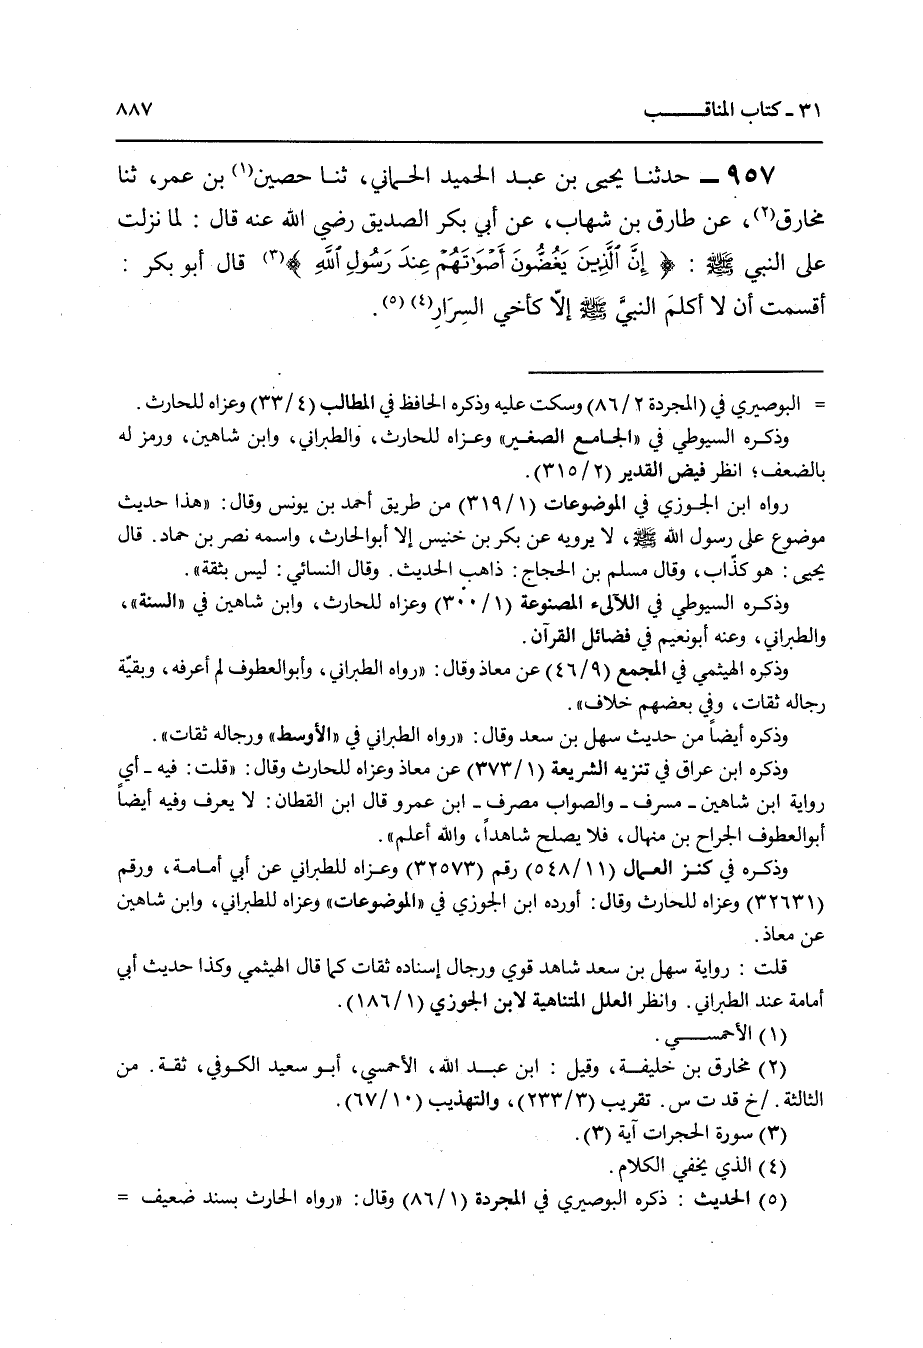 ٣١ ـ كتاب المناقـــــب
٨٨٧
٩٥٧ ــ حدثنـا يحيى بن عبـد الحميد الحـماني، ثنـا حصين(١) بن عمر، ثنا
مخارق(٢)، عن طارق بن شهاب، عن أبي بكر الصديق رضي الله عنه قال : لما نزلت
على النبي ﷺ : ﴿ إِنَّ ٱلَّذِينَ يَغُضُّونَ أَصْوَٰتَهُمْ عِندَ رَسُولِ ٱللَّهِ ﴾(٣) قال أبو بكر :
أقسمت أن لا أكلمَ النبيَّ ﷺ إلّا كأخي السِرَارِ(٤) (٥).
= البوصيري في (المجردة ٨٦/٢) وسكت عليه وذكره الحافظ في المطالب (٣٣/٤) وعزاه للحارث.
وذكـره السيوطي في «الجـامع الصغـير» وعـزاه للحارث، والطبراني، وابن شاهين، ورمز له
بالضعف؛ انظر فيض القدير (٣١٥/٢).
رواه ابن الجـوزي في الموضوعات (٣١٩/١) من طريق أحمد بن يونس وقال: «هذا حديث
موضوع على رسول الله ﷺ، لا يرويه عن بكر بن خنيس إلا أبوالحارث، واسمه نصر بن حماد. قال
يحيى: هو كذّاب، وقال مسلم بن الحجاج: ذاهب الحديث. وقال النسائي: ليس بثقة».
وذكـره السيوطي في اللآلىء المصنوعة (٣٠٠/١) وعزاه للحارث، وابن شاهين في «السنة»،
والطبراني، وعنه أبونعيم في فضائل القرآن.
وذكره الهيثمي في المجمع (٤٦/٩) عن معاذ وقال: «رواه الطبراني، وأبوالعطوف لم أعرفه، وبقيّة
رجاله ثقات، وفي بعضهم خلاف».
وذكره أيضاً من حديث سهل بن سعد وقال: «رواه الطبراني في «الأوسط» ورجاله ثقات».
وذكره ابن عراق في تنزيه الشريعة (٣٧٣/١) عن معاذ وعزاه للحارث وقال: «قلت: فيه ـ أي
رواية ابن شاهين ـ مسرف ـ والصواب مصرف ـ ابن عمرو قال ابن القطان: لا يعرف وفيه أيضاً
أبوالعطوف الجراح بن منهال، فلا يصلح شاهداً، والله أعلم».
وذكـره في كنـز العـمال (٥٤٨/١١) رقم (٣٢٥٧٣) وعـزاه للطبراني عن أبي أمـامـة، ورقم
(٣٢٦٣١) وعزاه للحارث وقال: أورده ابن الجوزي في «الموضوعات» وعزاه للطبراني، وابن شاهين
عن معاذ.
قلت : رواية سهل بن سعد شاهد قوي ورجال إسناده ثقات كما قال الهيثمي وكذا حديث أبي
أمامة عند الطبراني. وانظر العلل المتناهية لابن الجوزي (١٨٦/١).
(١) الأحمســـي.
(٢) مخارق بن خليفـة، وقيل : ابن عبـد الله، الأحمسي، أبـو سعيد الكـوفي، ثقـة. من
الثالثة. /خ قد ت س. تقريب (٢٣٣/٣)، والتهذيب (٦٧/١٠).
(٣) سورة الحجرات آية (٣).
(٤) الذي يخفي الكلام.
(٥) الحديث : ذكره البوصيري في المجردة (٨٦/١) وقال: «رواه الحارث بسند ضعيف =